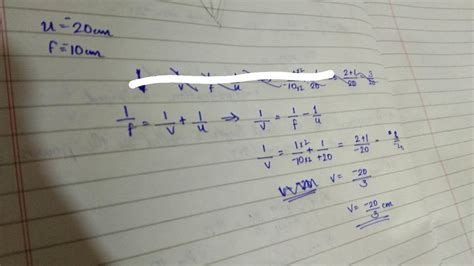 u = 20cm
f = 10cm
2+1/20 = 3/20
1/f = 1/v + 1/u ⇒ 1/v = 1/f - 1/u
1/v = 1×2/-10×2 + 1/+20 = 2+1/-20 =
v = -20/3
v = -20/3 cm